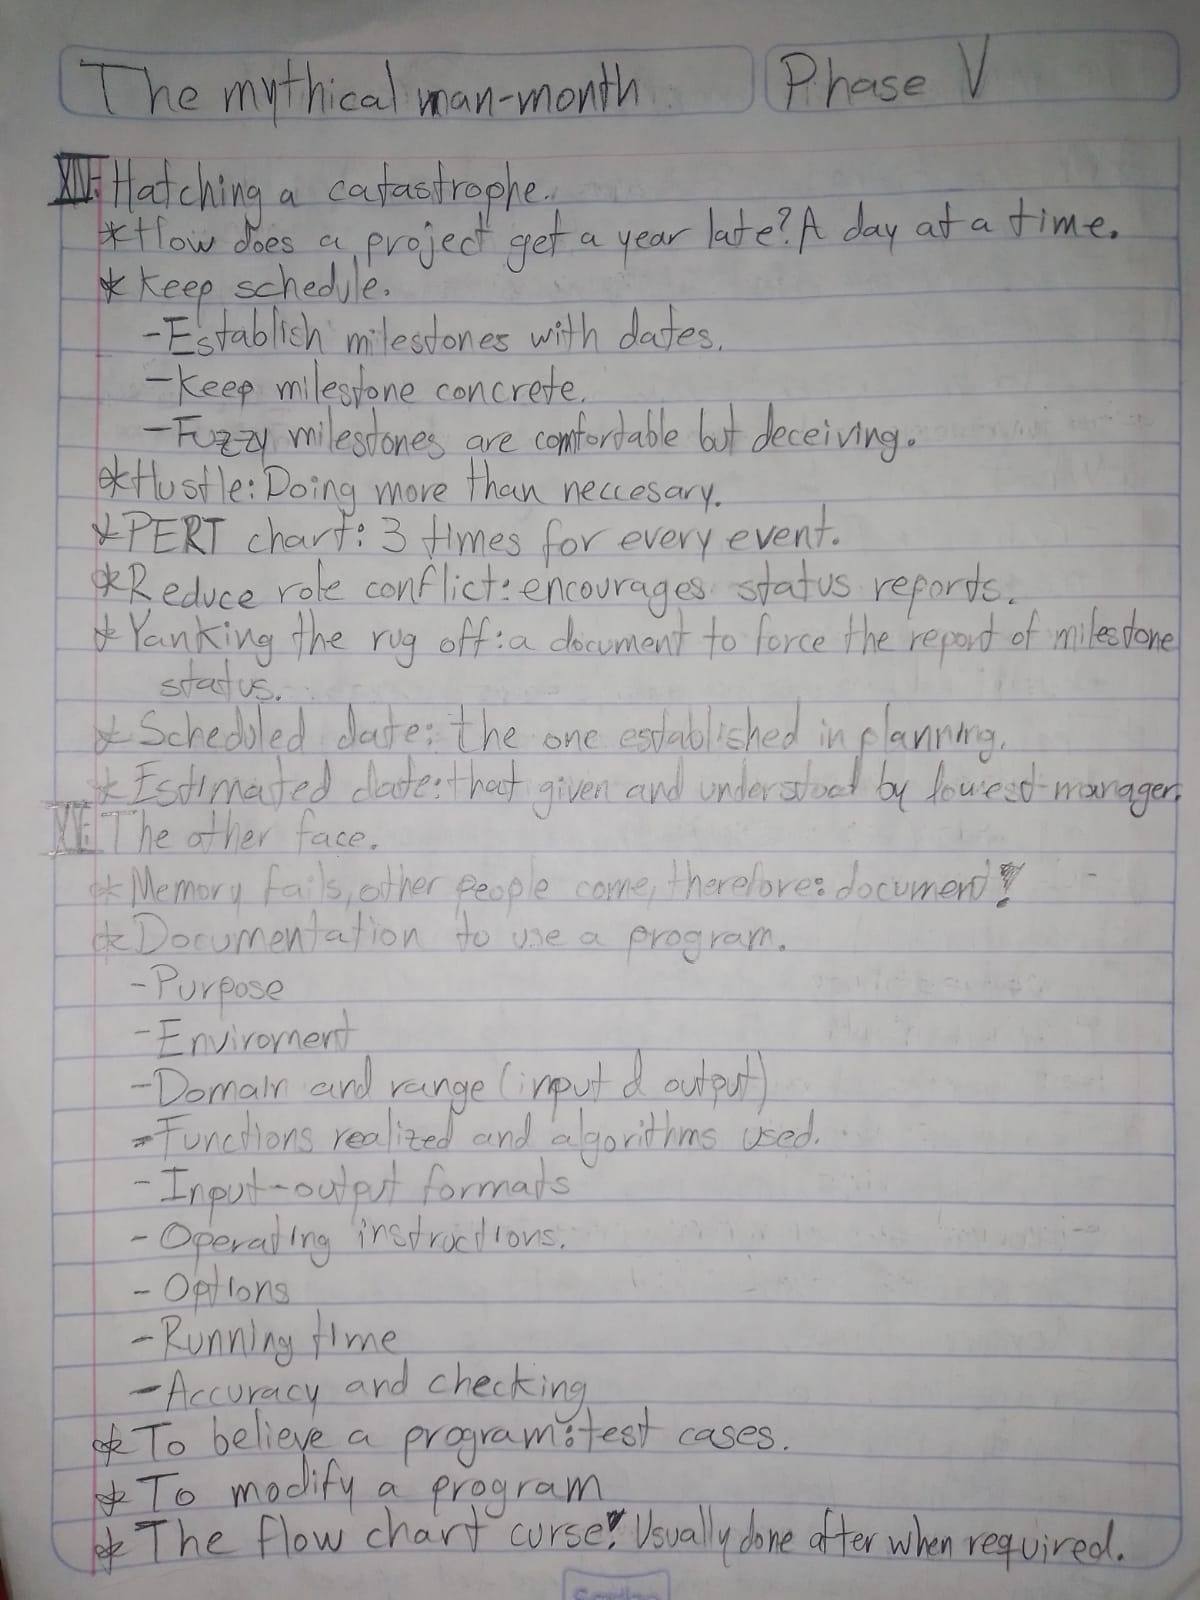 The mythical man-month Phase V
XIV: Hatching a catastrophe.
* How does a project get a year late? A day at a time.
* Keep schedule.
- Establish milestones with dates.
- Keep milestone concrete.
- Fuzzy milestones are comfortable but deceiving.
* Hustle: Doing more than neccesary.
* PERT chart: 3 times for every event.
* Reduce role conflict: encourages status reports.
* Yanking the rug off: a document to force the report of milestone
status.
* Scheduled date: the one established in planning.
* Estimated date: that given and understood by lowest-manager.
XV: The other face.
* Memory fails, other people come, therefore: document!
* Documentation to use a program.
- Purpose
- Enviroment
- Domain and range (input & output)
- Functions realized and algorithms used.
- Input-output formats
- Operating instructions.
- Options
- Running time
- Accuracy and checking
* To believe a program: test cases.
* To modify a program
* The flow chart curse! Usually done after when required.